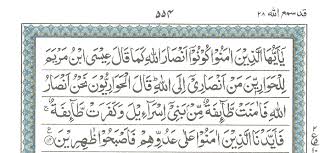 قد سمع الله ٢٨
٥٥٤
يٰۤاَيُّهَا الَّذِيْنَ اٰمَنُوْا كُوْنُوْۤا اَنْصَارَ اللّٰهِ كَمَا قَالَ عِيْسَى ابْنُ مَرْيَمَ
لِلْحَوَارِيّٖنَ مَنْ اَنْصَارِيْۤ اِلَى اللّٰهِ ؕ قَالَ الْحَوَارِيُّوْنَ نَحْنُ اَنْصَارُ
اللّٰهِ فَاٰمَنَتْ طَّآئِفَةٌ مِّنْۢ بَنِيْۤ اِسْرَآءِيْلَ وَكَفَرَتْ طَّآئِفَةٌ ۚ
فَاَيَّدْنَا الَّذِيْنَ اٰمَنُوْا عَلٰى عَدُوِّهِمْ فَاَصْبَحُوْا ظٰهِرِيْنَ